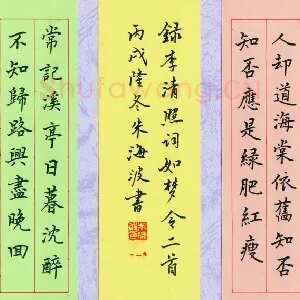 人却道海棠依舊知否
知否應是綠肥紅瘦
錄李清照詞如梦令二首
丙戌隆冬朱海波書
常記溪亭日暮沈醉
不知歸路興盡晚回